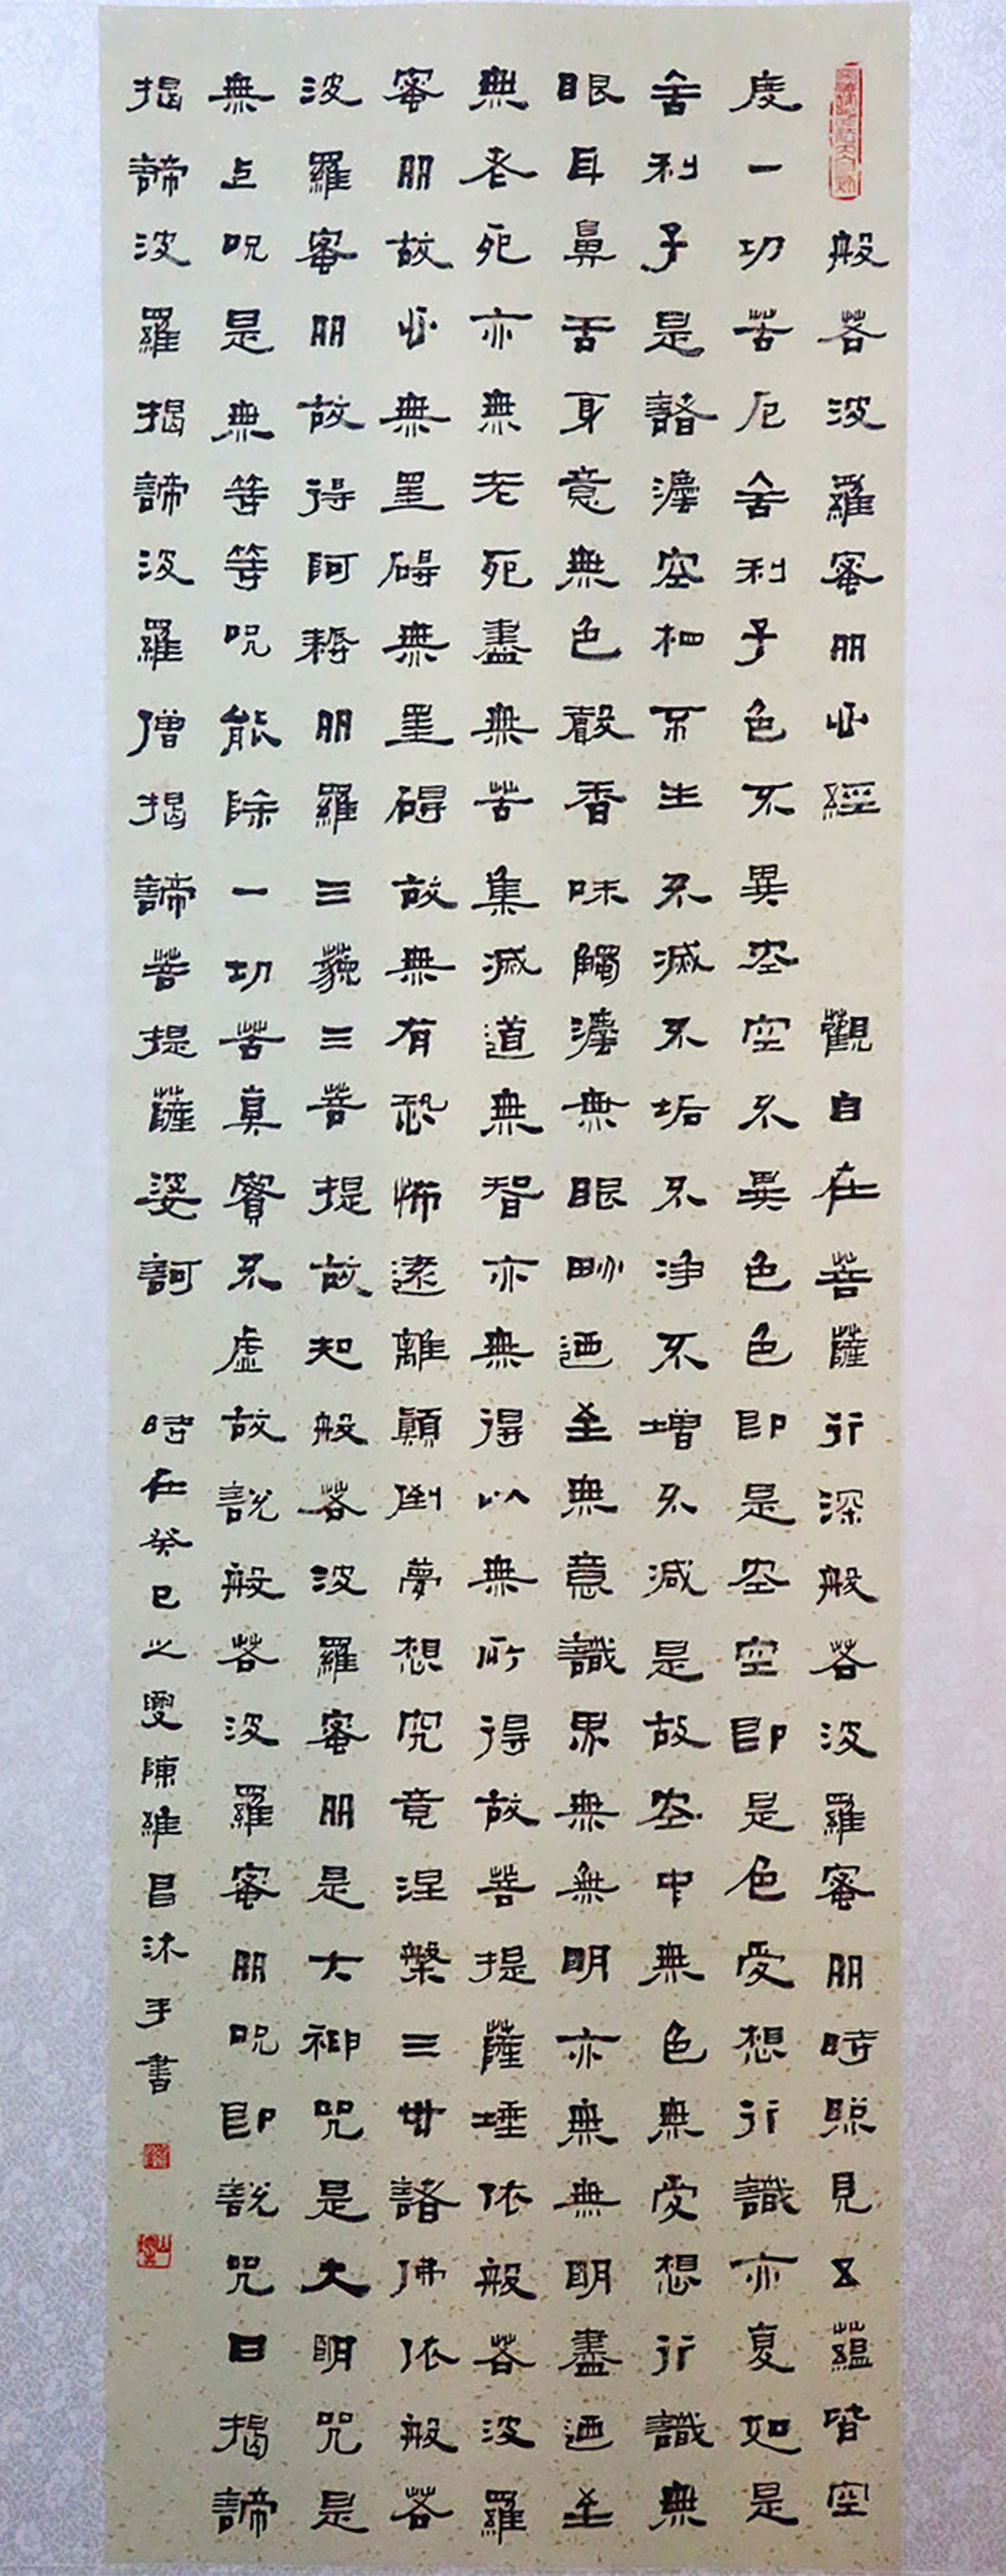 般若波羅蜜多心經 觀自在菩薩行深般若波羅蜜多時照見五蘊皆空
度一切苦厄舍利子色不異空空不異色色即是空空即是色受想行識亦复如是
舍利子是諸灋空相不生不滅不垢不淨不增不減是故空中無色無受想行識無
眼耳鼻舌身意無色聲香味觸灋無眼界迺至無意識界無無明亦無無明盡迺至
無老死亦無老死盡無苦集滅道無智亦無得以無所得故菩提薩埵依般若波羅
蜜多故心無罣碍無罣碍故無有恐怖遠離顛倒夢想究竟涅槃三世諸佛依般若
波羅蜜多故得阿耨多羅三藐三菩提故知般若波羅蜜多是大神咒是大明咒是
無上咒是無等等咒能除一切苦真實不虛故說般若波羅蜜多咒即說咒曰揭諦
揭諦波羅揭諦波羅僧揭諦菩提薩婆訶 時在癸巳之夏陳維昌沐手書